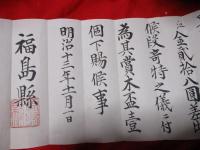 金貳拾八圓差出
候段奇特之儀ニ付
為其賞木盃壹
個下賜候事
明治十三年十一月一日
福島縣